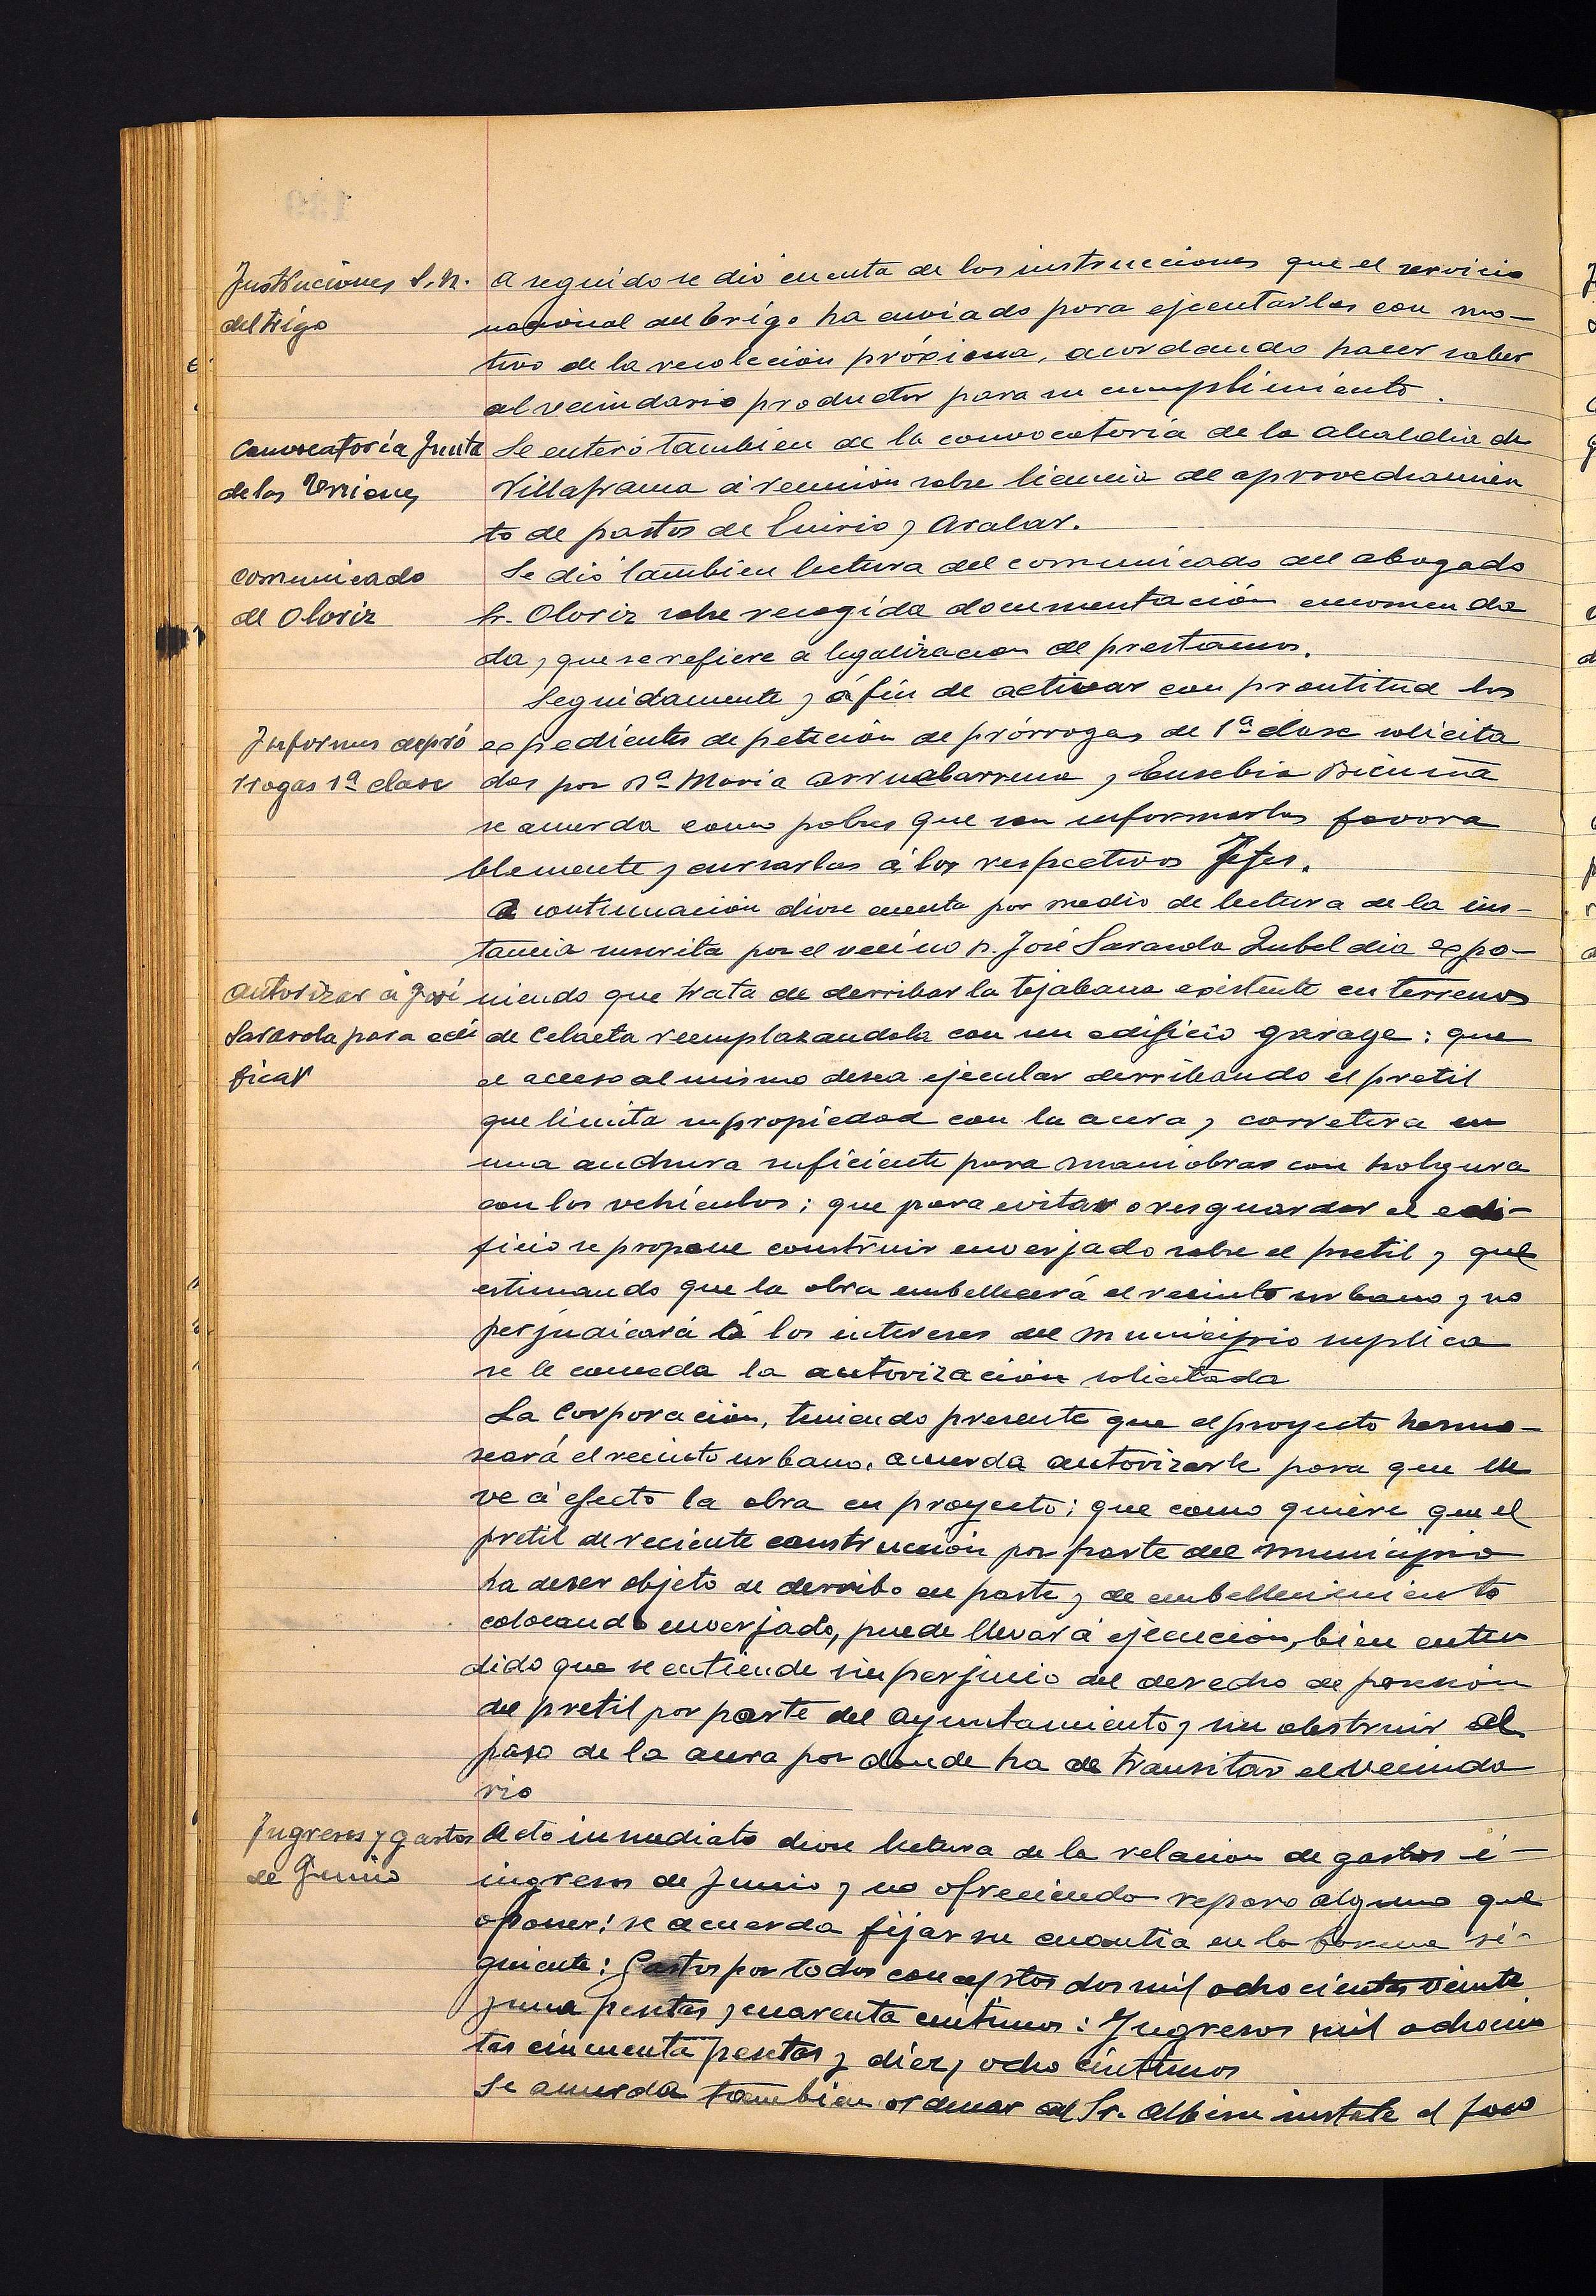 Instruciones S. N.
del trigo
A seguido se dió cuenta de las instrucciones que el servicio
nacional del trigo ha enviado para ejecutarlas con mo-
tivo de la recoleción próxima, acordando hacer saber
al vecindario productor para su cumplimiento.
Convocatoria Junta
de las Uniones
Se enteró tambien de la convocatoria de la alcaldia de
Villafranca á reunión sobre licencia de aprovechamien
to de pastos de Enirio y Aralar.
Comunicado
de Oloriz
Se dió tambien lectura del comunicado del abogado
Sr. Oloriz sobre recogida documentación encomenda
da, que se refiere a legalizacion de prestamos.
Seguidamente y á fin de activar con prontitud los
Informes depró
rrogas 1ª clase
expedientes de petición de prórrogas de 1ª clase solicita
das por Dª Maria Arruabarrena y Eusebia Vicuña
se acuerda como pobres que son informarlas favora
blemente y cursarlas á los respectivos Jefes.
A continuación diose cuenta por medio de lectura de la ins-
tancia suscrita por el vecino D. José Sarasola Zubeldia expo-
Autorizar á José
Sarasola para edi
ficar
niendo que trata de derribar la tejabana existente en terrenos
de Celaeta reemplazandola con un edificio garage: que
el acceso al mismo desea ejecutar derribando el pretil
que limita su propiedad con la acera y carretera en
una anchura suficiente para maniobras con holgura
con los vehículos; que para evitar o resguardar el edi-
ficio se propone construir enverjado sobre el pretil y que
estimando que la obra embellecerá el recinto urbano y no
perjudicará á los intereses del municipio suplica
se le conceda la autorización solicitada
La Corporación, teniendo presente que el proyecto hermo-
seará el recinto urbano. acuerda autorizarle para que lle
ve á efecto la obra en proyecto; que como quiere que el
pretil de reciente construcción por parte del municipio
ha de ser objeto de derribo en parte y de embellecimiento
colocando enverjado, puede llevar á ejecución, bien enten
dido que se entiende sin perjuicio del derecho de posesión
del pretil por parte del ayuntamiento y sin obstruir al
paso de la acera por donde ha de transitar el vecinda
rio
Ingresos y gastos
de Junio
Acto inmediato diose lectura de la relacion de gastos é-
ingresos de Junio y no ofreciendo reparo alguno que
oponer: se acuerda fijar su cuantia en la forma si-
guiente: Gastos por todos conceptos dos mil ochocientas veinte
y una pesetas y cuarenta centimos: Ingresos mil ochocien
tas cincuenta pesetas y diez y ocho centimos
Se acuerda tambien ordenar al Sr. Albisu instale el foco